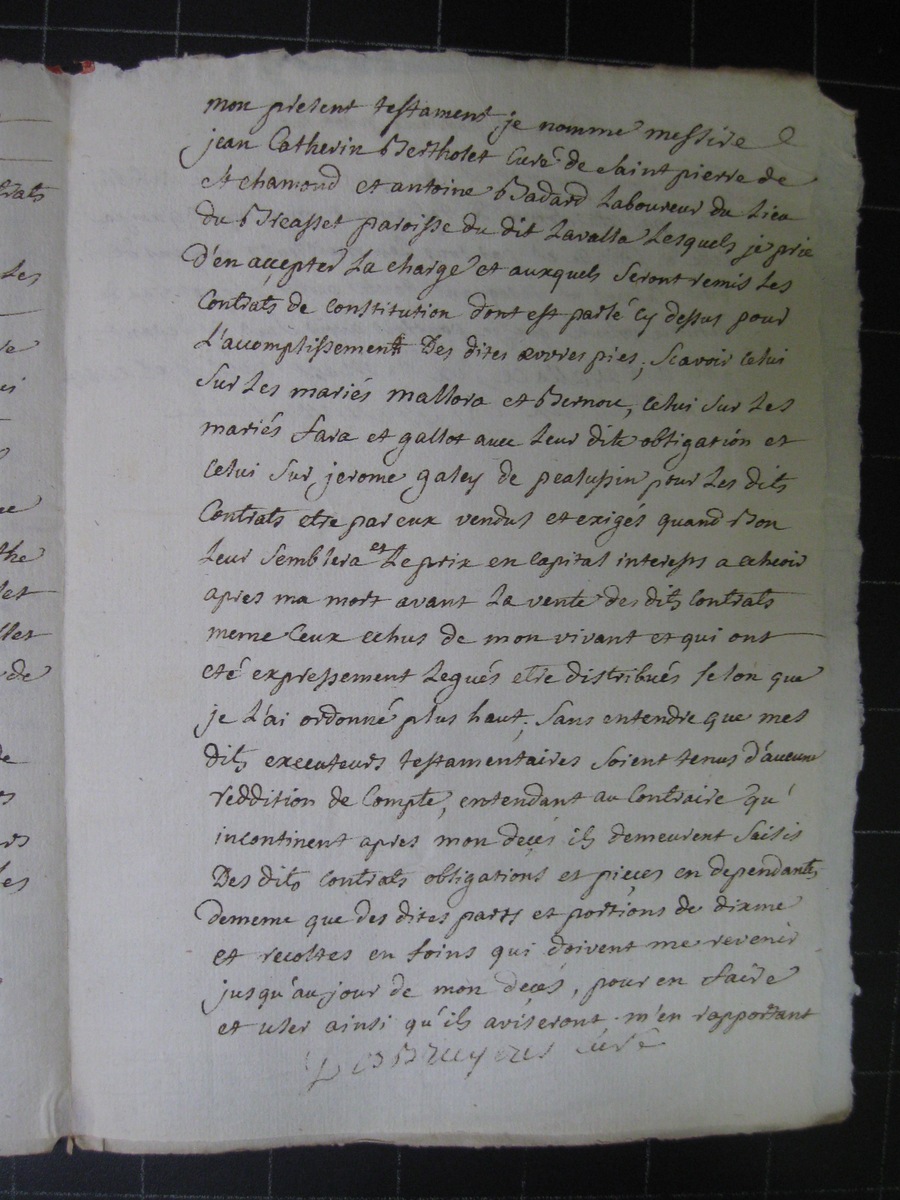 mon present testament je nomme messire
jean Catherin Bertholet Curé de saint pierre de
st chamond et antoine Badard Laboureur du Lieu
du Breasset paroisse du dit Lavalla Lesquels je prie
d'en accepter La charge et auxquels seront remis Les
Contrats de constitution dont est parlé cy dessus pour
L'accomplissement Des dites œuvres pies, scavoir celui
sur Les mariés mallora et Bernou, celui sur Les
mariés fara et gallot avec Leur dite obligation et
celui sur jerome galey de pealussin pour Les dits
Contrats etre par eux vendus et exigés quand Bon
Leur semblera et Le prix en capital interests a echeoir
apres ma mort avant La vente des dits contrats
meme Ceux echus de mon vivant et qui ont
eté expressement Legués etre distribués selon que
je L'ai ordonné plus haut, sans entendre que mes
dits executeurs testamentaires soient tenus d'aucune
reddition de Compte, entendant au Contraire qu'
incontinent apres mon decés ils demeurent saisis
Des dits contrats obligations et pieces en dependants,
dememe que des dites parts et portions de dixme
et recoltes en foins qui doivent me revenir
jusqu'au jour de mon decés, pour en faire
et user ainsi qu'ils aviseront m'en rapportant
DesBruyeres curé
rats
Les
the
let
llet
de